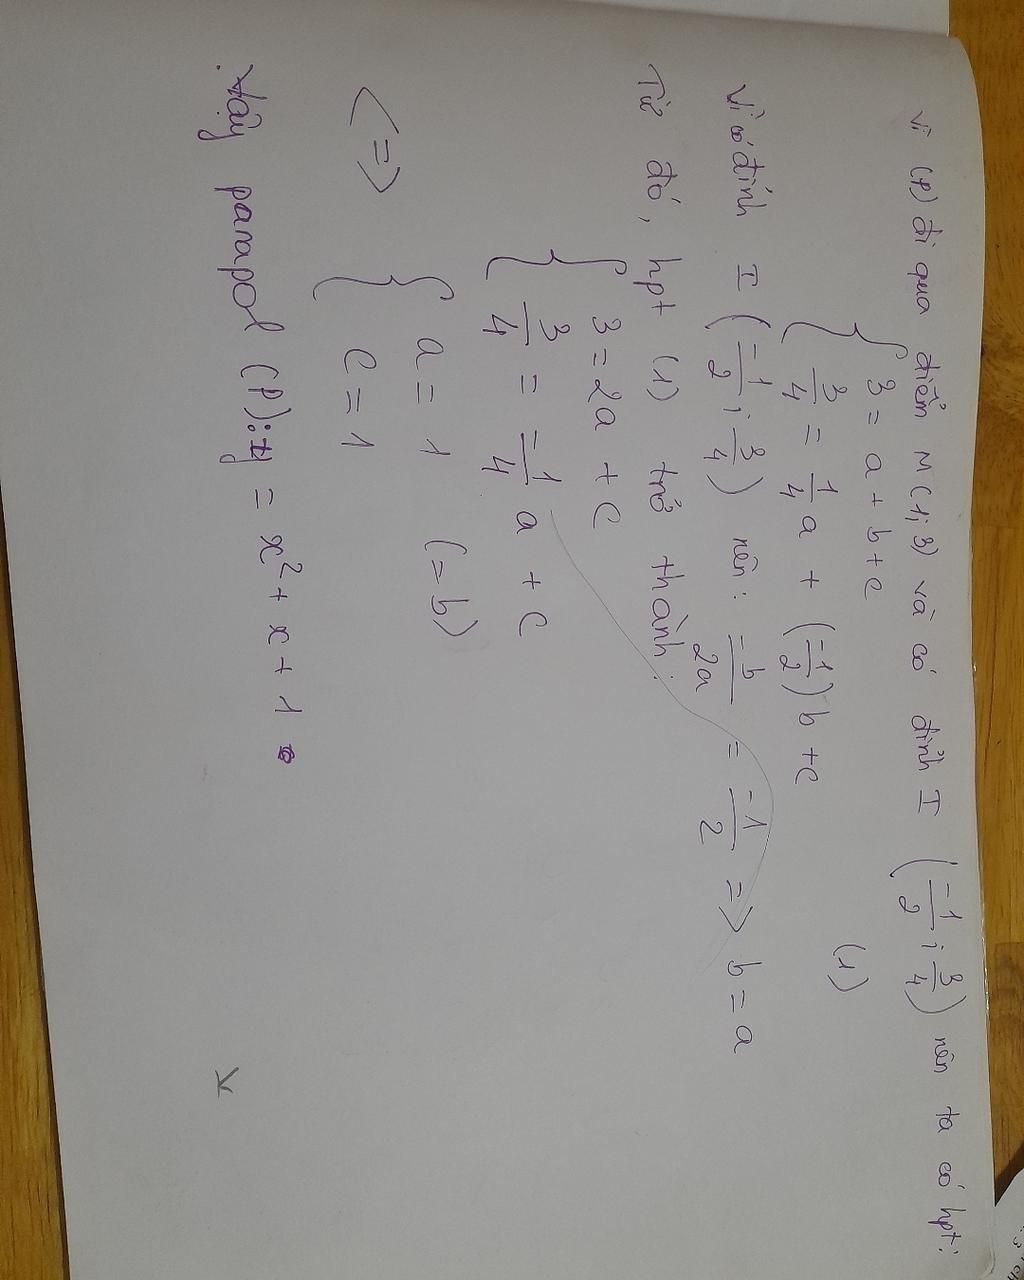 Vì (P) đi qua điểm M(1;3) và có đỉnh I (-1/2; 3/4) nên ta có hpt:
{ 3 = a + b + c
3/4 = 1/4 a + (-1/2) b + c (1)
Vì có đỉnh I (-1/2; 3/4) nên: -b/2a = -1/2 => b = a
Từ đó, hpt (1) trở thành:
{ 3 = 2a + c
3/4 = -1/4 a + c
<=> { a = 1 (= b)
c = 1
Vậy parapol (P): y = x² + x + 1